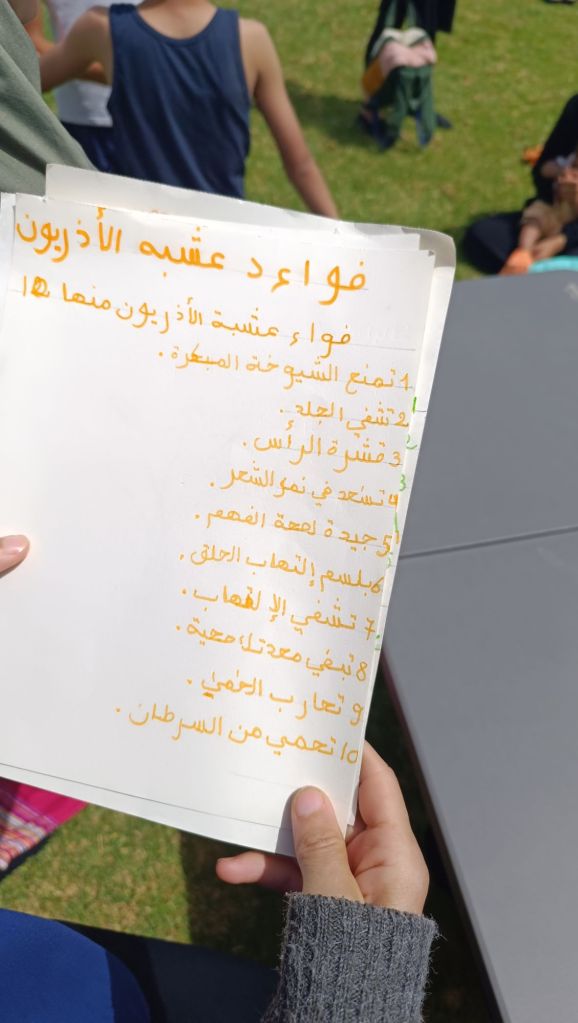 فواءد عشبه الأذريون
فواء عشبة الأذريون منها 10
1 تمنع الشيوخة المبكرة.
2 تشفي الجلد.
3 قشرة الرأس.
4 تسعد في نمو الشعر.
5 جيدة لصحة الفهم.
6 بلسم إلتهاب الحلق.
7 تشفي الإلتهاب.
8 تبقي معدتك صحية.
9 تحارب الحمى.
10 تحمي من السرطان.